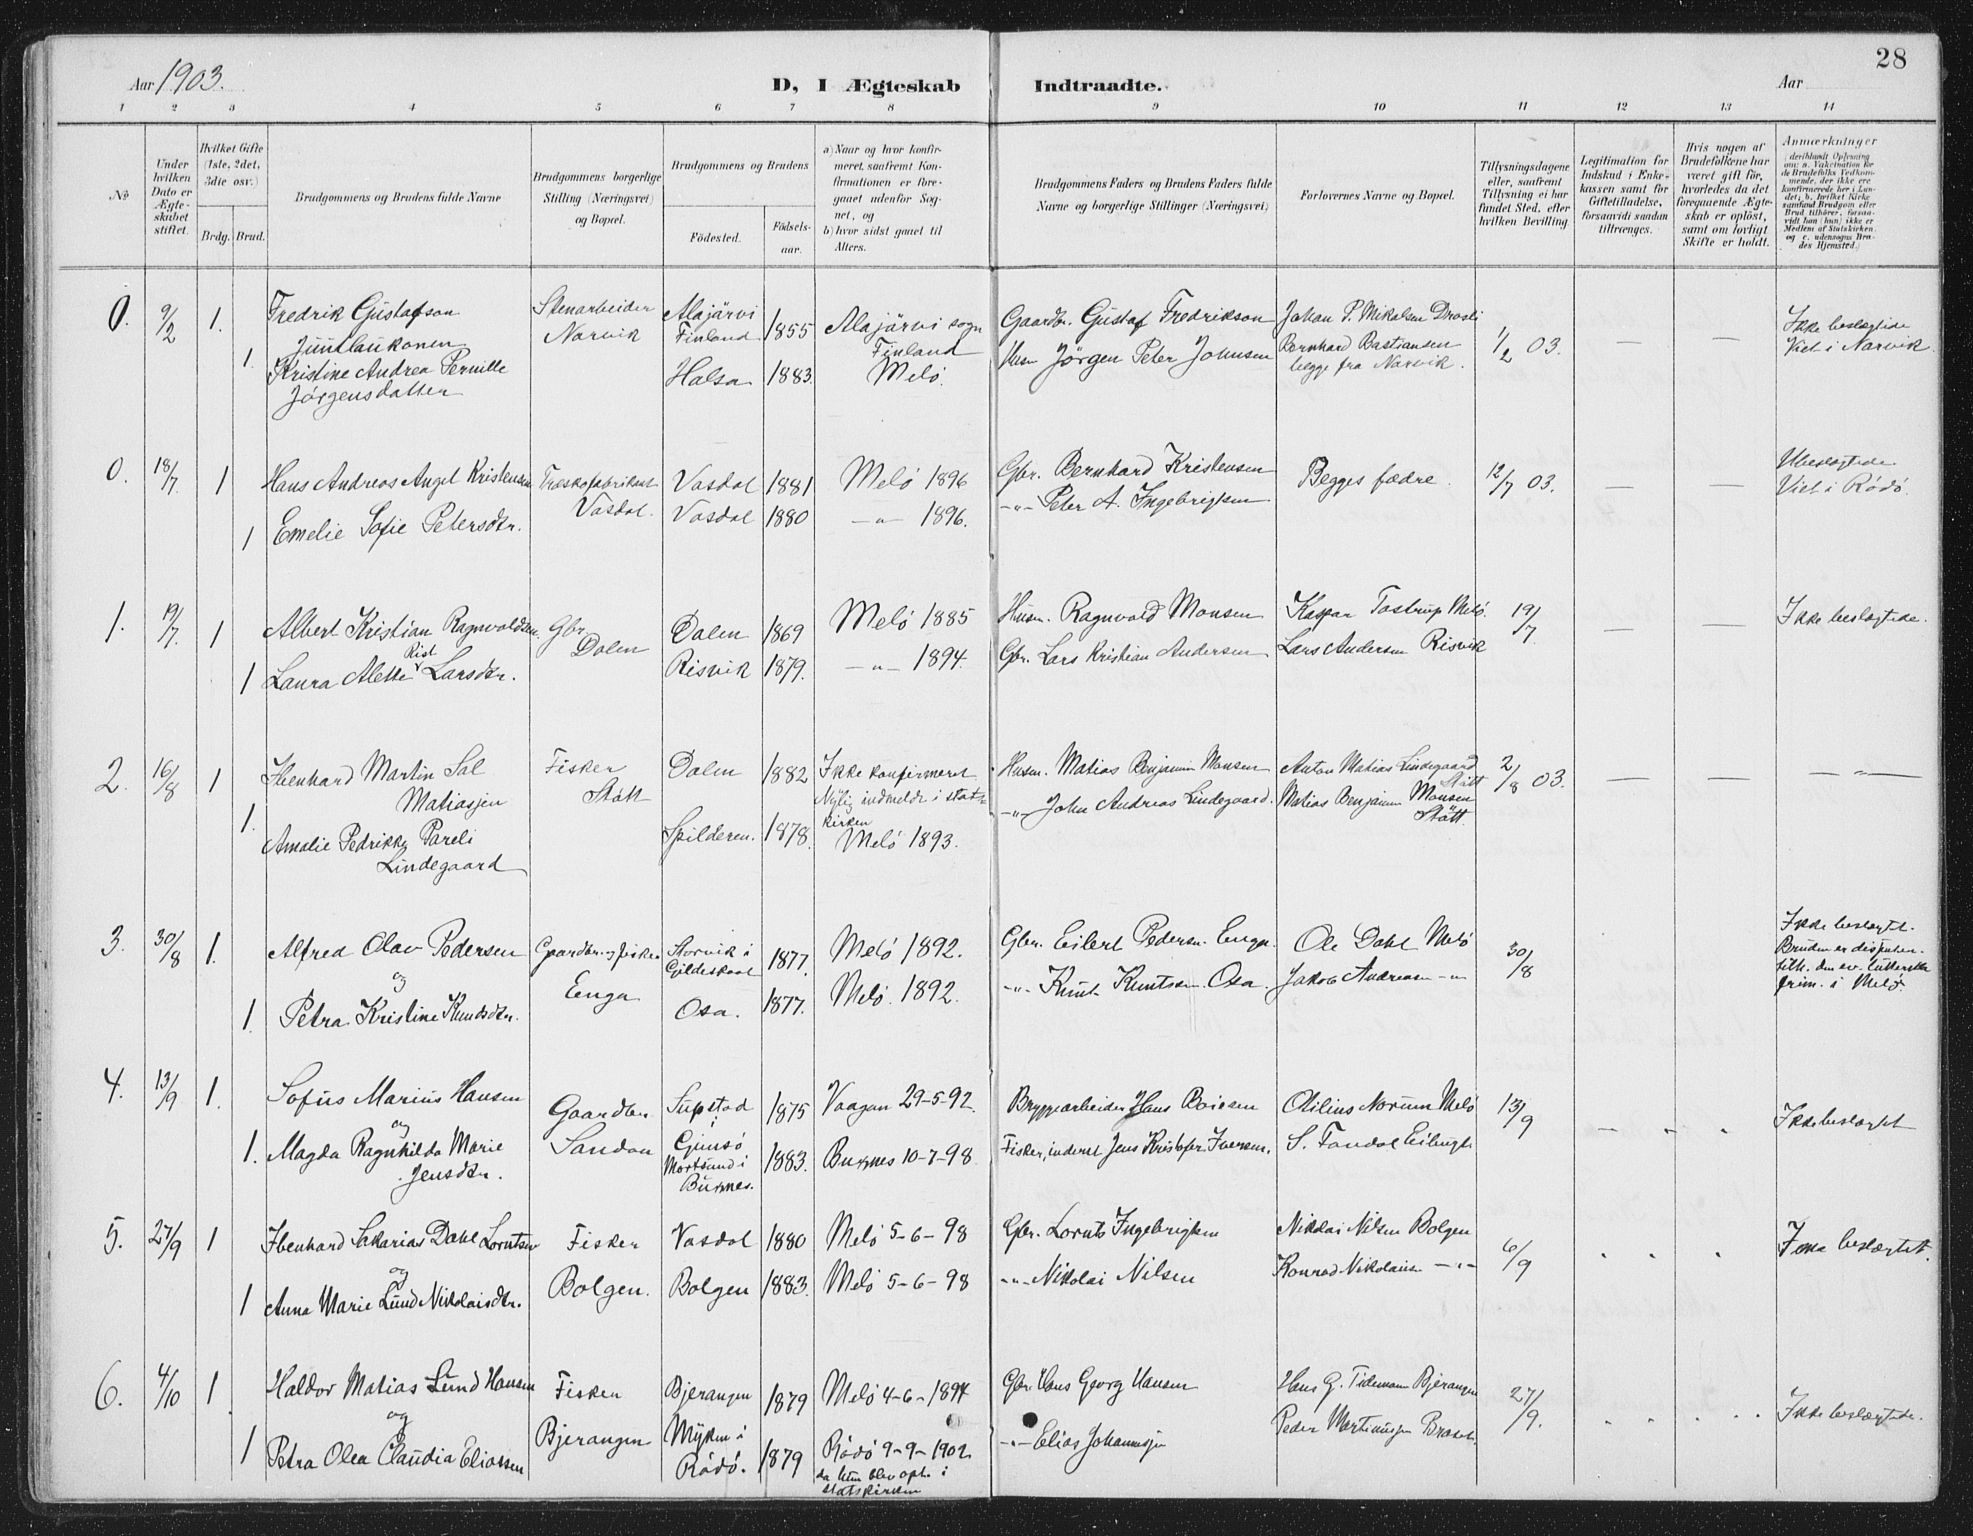 28
Aar 1903.
D, I Ægteskab Indtraadte.
Aar
1 2 3 4 5 6 7 8 9 10 11 12 13 14
No
Under hvilken Dato er Ægteskabet stiftet.
Hvilket Gifte (1ste, 2det, 3die osv.)
Brdg. Brud.
Brudgommens og Brudens fulde Navne
Brudgommens borgerlige Stilling (Næringsvei) og Bopæl.
Brudgommens og Brudens
Fødested.
Fødselsaar.
a) Naar og hvor konfirmeret, saafremt Konfirmationen er foregaaet udenfor Sognet, og
b) hvor sidst gaaet til Alters.
Brudgommens Faders og Brudens Faders fulde Navne og borgerlige Stillinger (Næringsvei)
Forlovernes Navne og Bopæl.
Tillysningsdagene eller, saafremt Tillysning ei har fundet Sted, efter hvilken Bevilling
Legitimation for Indskud i Enkekassen samt for Giftetilladelse, forsaavidt saadan tiltrænges.
Hvis nogen af Brudefolkene har været gift før, hvorledes da det foregaaende Ægteskab er opløst, samt om lovligt Skifte er holdt.
Anmærkninger
(deriblandt Oplysning om: a. Vakcination for de Brudefolks Vedkommende, der ikke ere konfirmerede her i Landet; b. hvilket Kirkesamfund Brudgom eller Brud tilhører, forsaavidt han (hun) ikke er Medlem af Statskirken og c. udensogns Brudes Hjemsted.)
0. 9/2 1. Fredrik Gustafson Stenarbeider Alajärvi 1855 Alajärvi sogn Gaardbr. Gustaf Fredrikson Johan P. Mikalsen 1/2 03. — — Ikke beslægtede
Narvik Finland Finland Bernhard Bastiansen Viet i Narvik
1. Kristine Andrea Pernille Halsa 1883. Melö. Husm Jörgen Peter Johnsen begge fra Narvik.
Jørgensdatter
0. 18/7 1 Hans Andreas Angel Kristensen Træskofabrikant Vasdal 1881 Melö 1896 Gbr. Bernhard Kristensen Begges fædre. 12/7 03. — — Ubeslægtede
Vasdal. Viet i Rödö.
1 Emelie Sofie Petersdtr. Vasdal 1880 —„— 1896. —„— Peter A. Ingebrigtsen
1. 19/7. 1 Albert Kristian Ragnvaldsen. Gbr Dalen 1869 Melö 1885 Husm. Ragnvald Monsen Kaspar Tostrup Melö. 19/7 — — Ikke beslægtede.
Dalen
1 Laura Alette Larsdtr. Risvik 1879. —„— 1894. Gbr. Lars Kristian Andersen Lars Andersen Risvik
2. 16/8 1 Ibenhard Martin Sal Fisker Dalen 1882 Ikke konfirmeret Husm. Matias Benjamin Monsen Anton Matias Lindegaard 2/8 03. — — —„—
Matiasjen Støtt Nylig indmeldt i stats Støtt
kirken
1. Amalie Pedrikke Pareli Spilderen. 1878. Melö 1893. —„— John Andreas Lindegaard. Matias Benjamin Monsen
Lindegaard Støtt.
3. 30/8 1. Alfred Olav Pedersen Gaardbr. og fisker Storvik i 1877. Melö 1892. Gbr. Eilert Pedersen. Enga. Ole Dahl Melö 30/8 Ikke beslægt.
og Enga Gildeskaal Bruden er
den ev. lutherske
frim. i Melø.
1. Petra Kristine Knudsdtr. Osa. 1877. Melö. 1892. —„— Knut Knutsen. Osa. Jakob Andreasen —„—
4. 13/9 1. Sofus Marius Hansen Gaardbr. 1875 Vaagan 29-5-92. Bryggearbeider Hans Boiesen Otilius Norum Melö 13/9 — Ikke beslægtet
og Sandan i Gimsö
1. Magda Ragnhilda Marie Mortsund i 1883. Buxnes 10-7-98 Fisker, inderst Jens Kristofer Iversen.
Jensdtr. Buxnes.
5. 27/9 1 Ibenhard Sakarias Dahl Lorntsen Fisker Vasdal 1880 Melö 5-6-98 Gbr. Lornts Ingebrigtsen Nikolai Nilsen Bolgen 6/9 Ikke beslægtet.
og Bolgen.
1 Anna Marie Lund Nikolaisdtr. Bolgen 1883. Melö 5-6-98 —„— Nikolai Nilsen Konrad Nikolaisen —„—
6. 4/10 1 Haldor Matias Lund Hansen Fisker Bjerangen 1879 Melö 4-6-1894 Gbr. Hans Georg Hansen Hans G. Tidemann Bjerangen 27/9. Ikke beslægtede.
og Bjerangen Myken i
1 Petra Olea Claudia Eliassen Rödö. 1879 Rödö 9-9-1902 —„— Elias Johannesjen Peder
da hun blev opt. i
statskirken